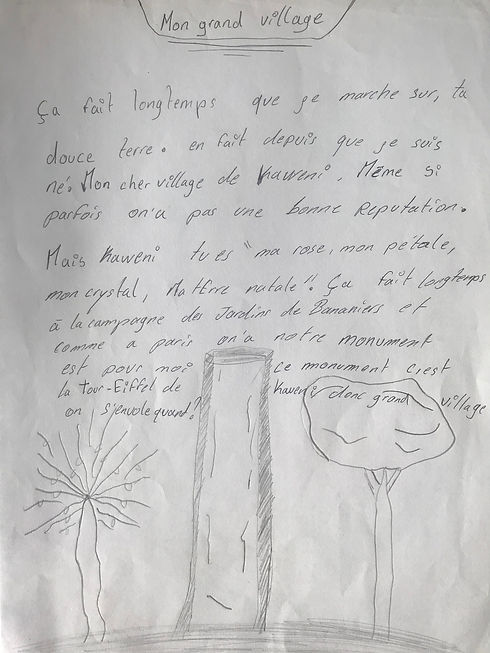 Mon grand village
Ça fait longtemps que je marche sur, ta
douce terre. en fait depuis que je suis
né. Mon cher village de Kaweni, Même si
parfois on'a pas une bonne Reputation.
Mais Kaweni tu es "ma rose, mon pétale,
mon crystal, Ma terre natale". Ça fait longtemps
à la campagne des Jardins de Bananiers et
comme a paris on'a notre monument
est pour moi ce monument c'est
la Tour-Eiffel de Kaweni donc grand village
on s'envole quand?